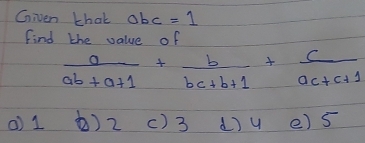 Given that abc = 1
find the value of
a/(ab + a + 1) + b/(bc + b + 1) + c/(ac + c + 1)
a) 1 b) 2 c) 3 d) 4 e) 5